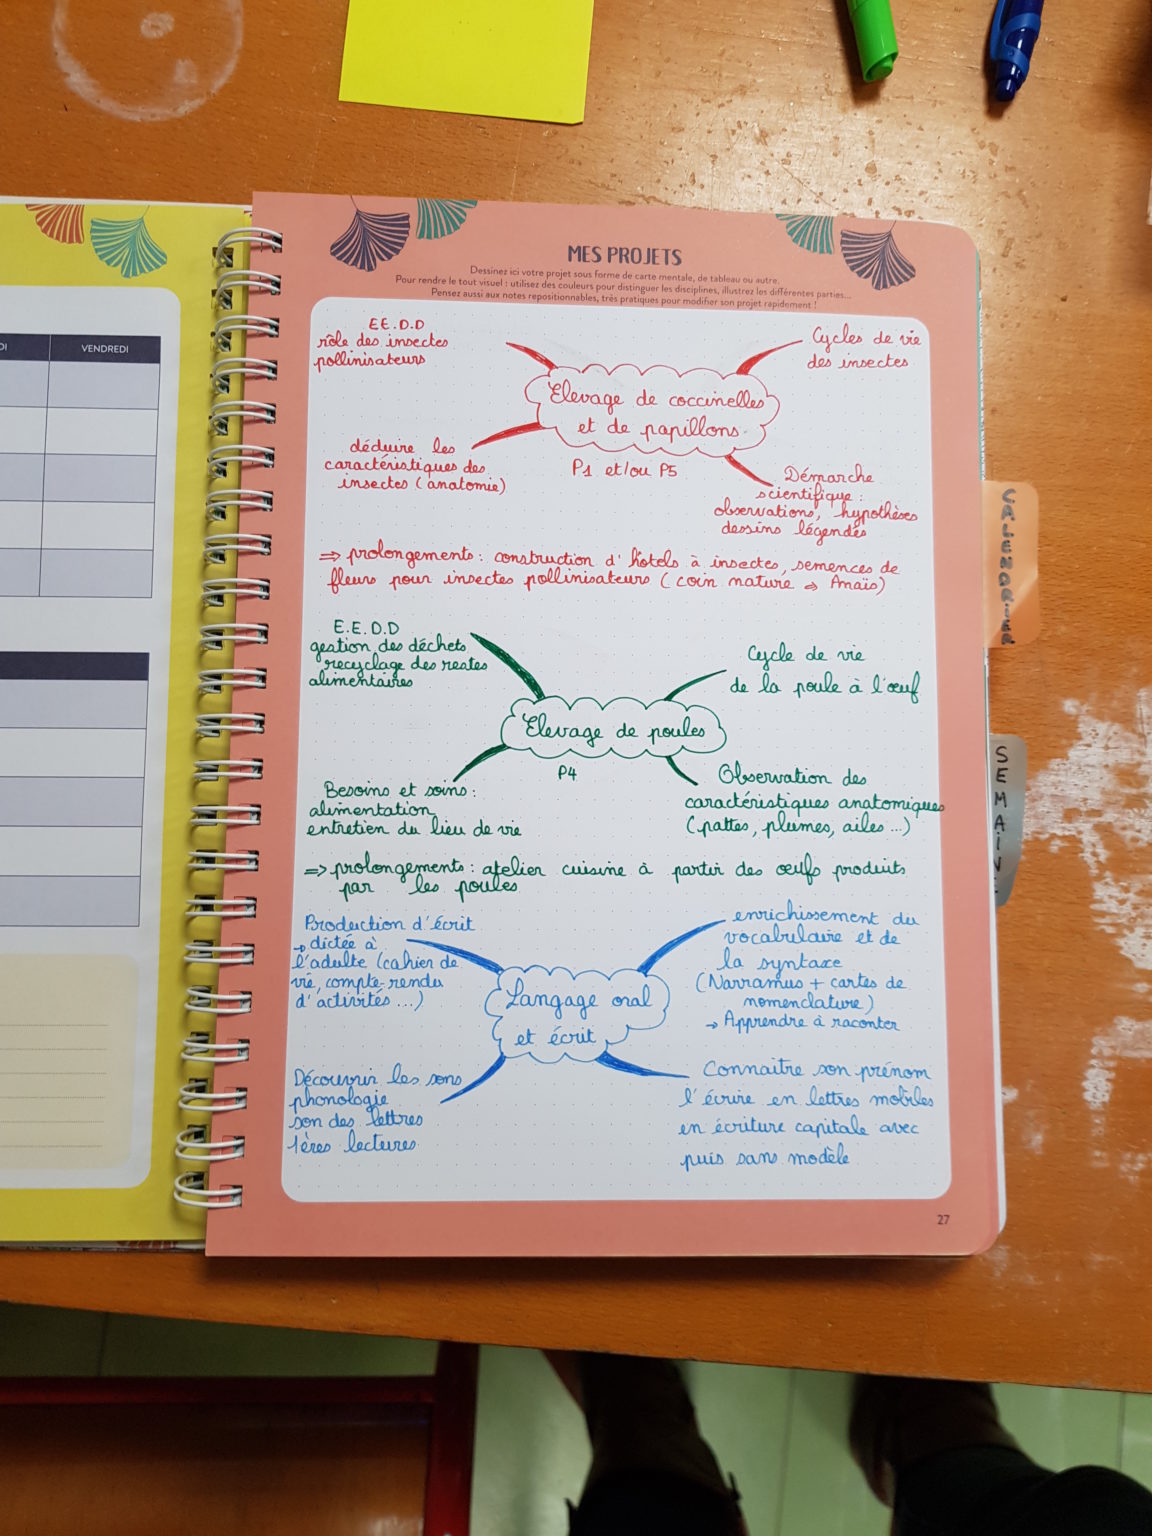 DI
VENDREDI
MES PROJETS
Dessinez ici votre projet sous forme de carte mentale, de tableau ou autre.
Pour rendre le tout visuel : utilisez des couleurs pour distinguer les disciplines, illustrez les différentes parties...
Pensez aussi aux notes repositionnables, très pratiques pour modifier son projet rapidement !
EE.D.D
rôle des insectes
pollinisateurs
Cycles de vie
des insectes
Elevage de coccinelles
et de papillons
P1 et/ou P5
déduire les
caractéristiques des
insectes (anatomie)
Démarche
scientifique :
observations, hypothèses
dessins légendés
⇒ prolongements : construction d'hôtels à insectes, semences de
fleurs pour insectes pollinisateurs (coin nature ⇒ Anaïs)
E.E.D.D
gestion des déchets
recyclage des restes
alimentaires
Cycle de vie
de la poule à l'œuf
Elevage de poules
P4
Besoins et soins :
alimentation
entretien du lieu de vie
Observation des
caractéristiques anatomiques
(pattes, plumes, ailes...)
⇒ prolongements : atelier cuisine à partir des œufs produits
par les poules
Production d'écrit
→ dictée à
l'adulte (cahier de
vie, compte-rendu
d'activités ...)
enrichissement du
vocabulaire et de
la syntaxe
(Narramus + cartes de
nomenclature)
→ Apprendre à raconter
Langage oral
et écrit
Découvrir les sons
phonologie
son des lettres
1ères lectures
Connaitre son prénom
l'écrire en lettres mobiles
en écriture capitale avec
puis sans modèle
27
CALENDRIER
SEMAIN